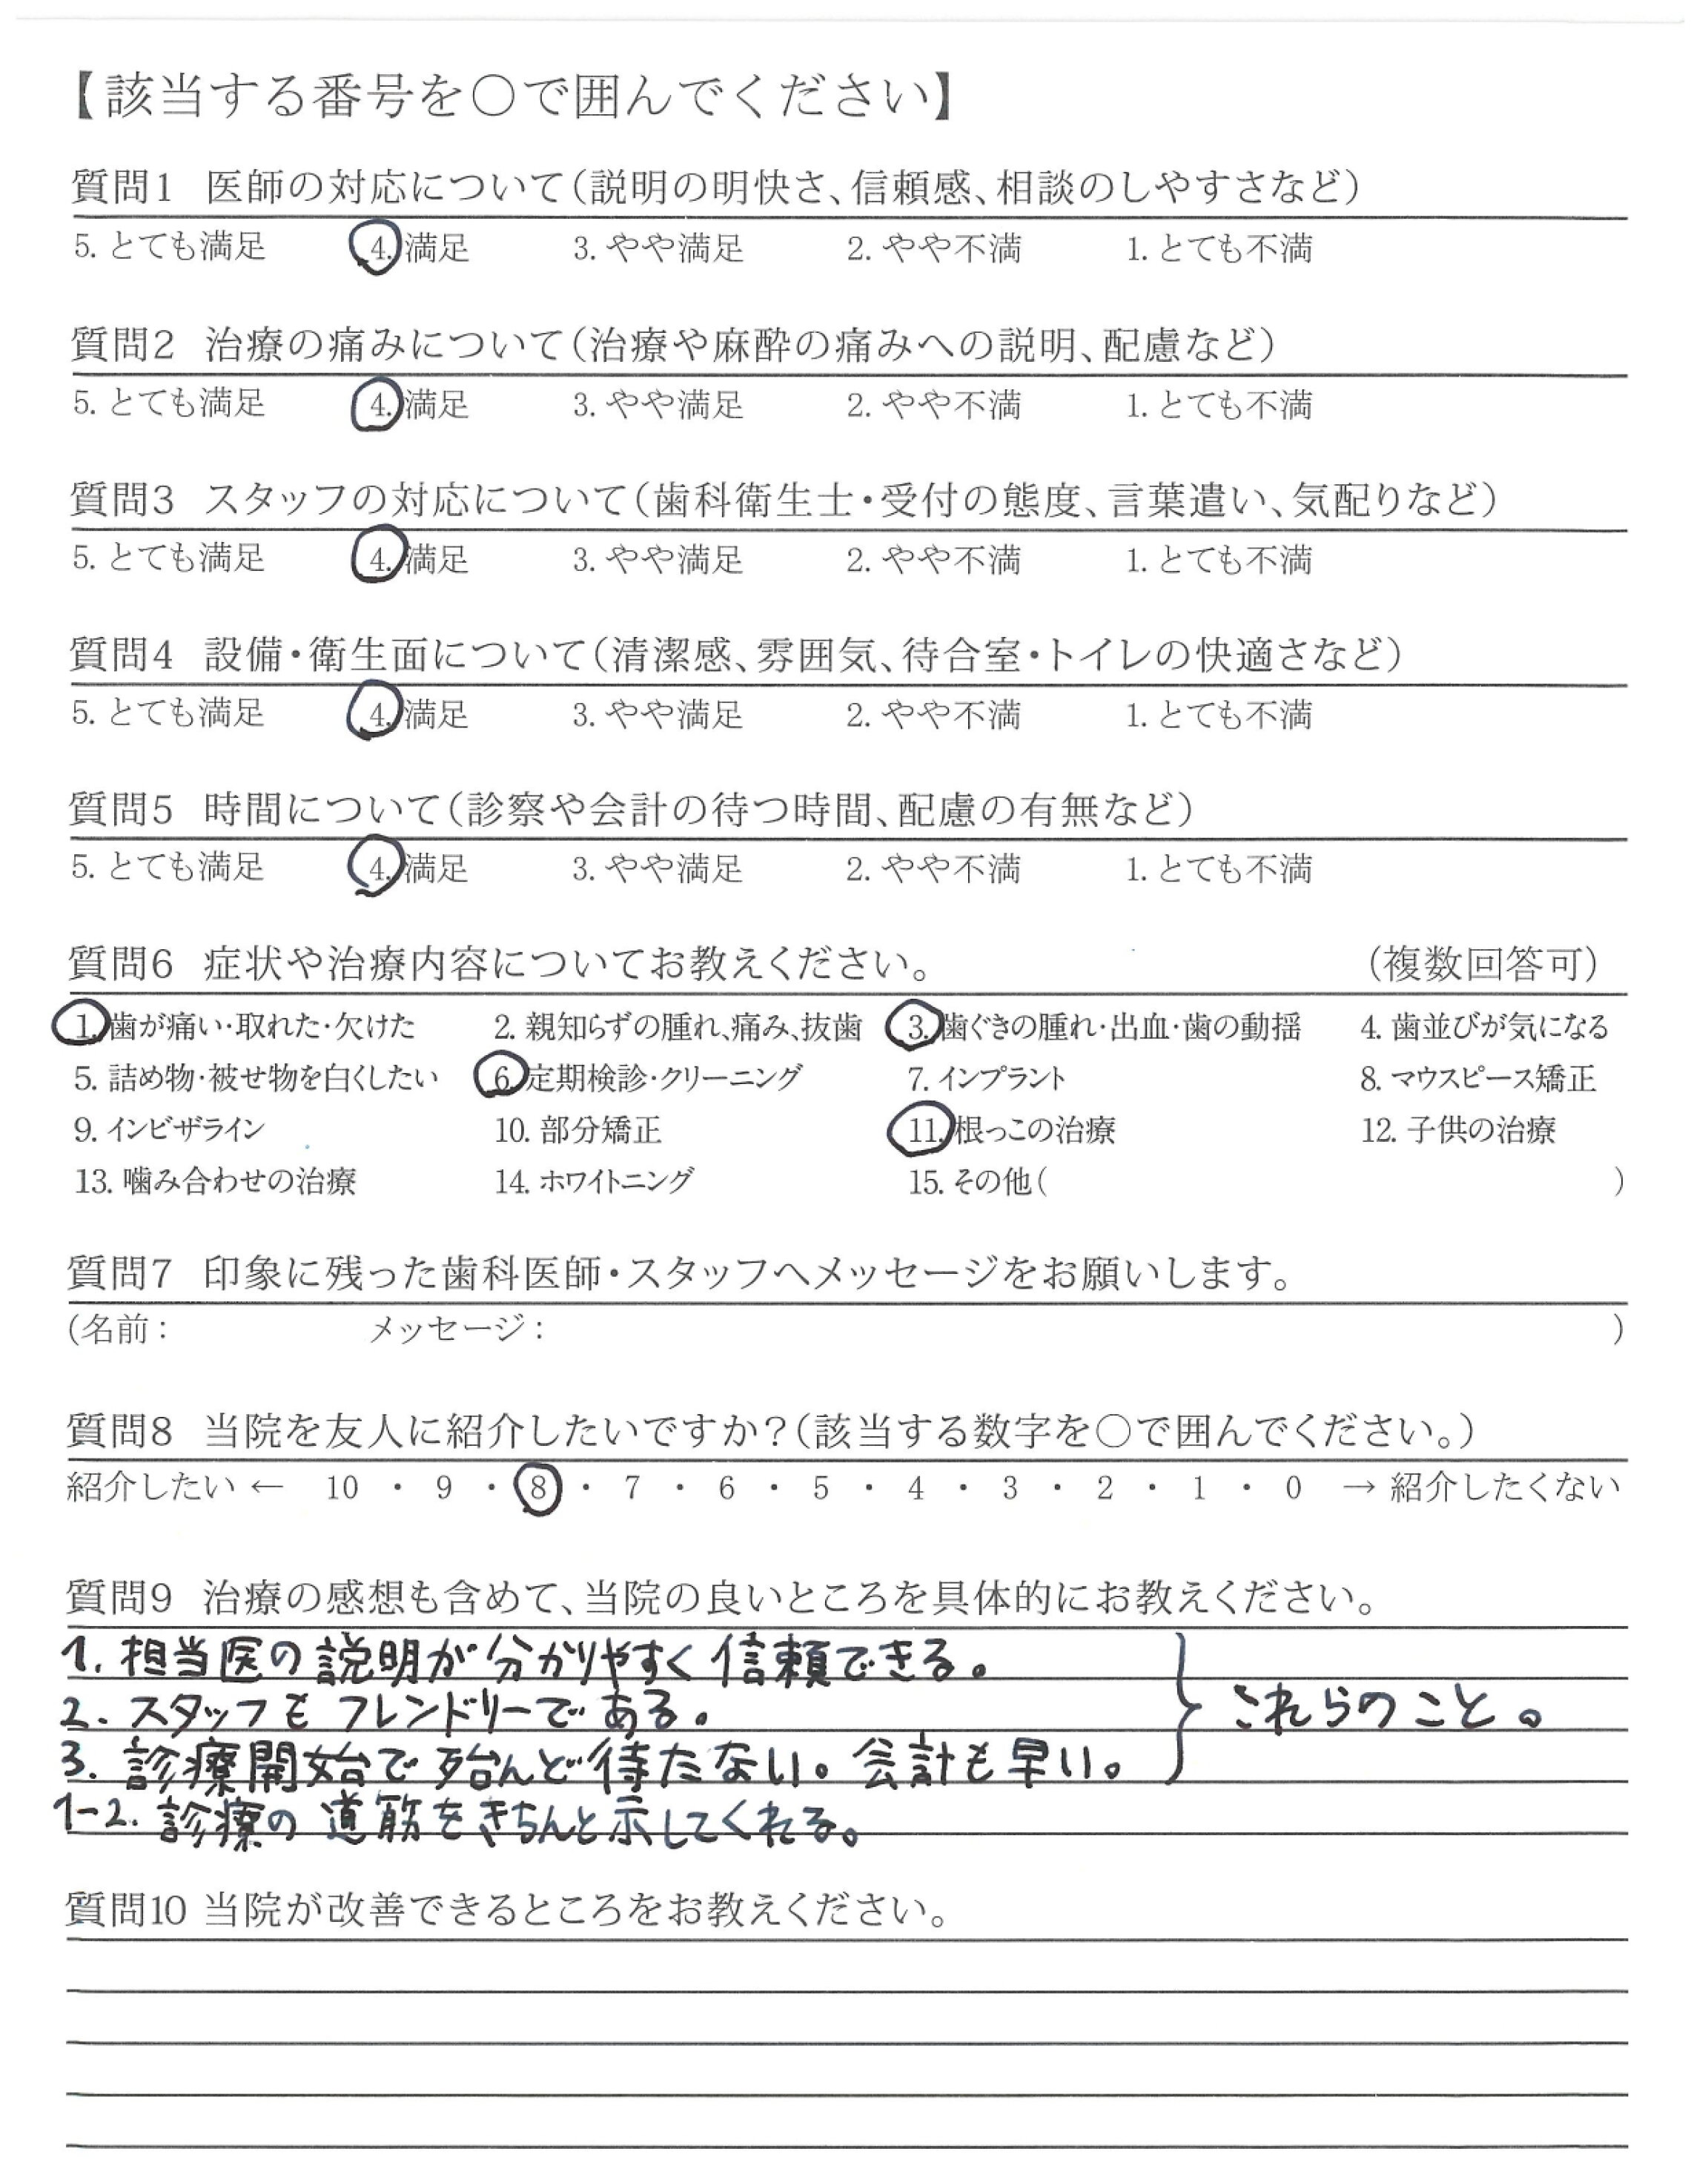 【該当する番号を○で囲んでください】
質問1 医師の対応について(説明の明快さ、信頼感、相談のしやすさなど)
5. とても満足 4. 満足 3. やや満足 2. やや不満 1. とても不満
質問2 治療の痛みについて(治療や麻酔の痛みへの説明、配慮など)
5. とても満足 4. 満足 3. やや満足 2. やや不満 1. とても不満
質問3 スタッフの対応について(歯科衛生士・受付の態度、言葉遣い、気配りなど)
5. とても満足 4. 満足 3. やや満足 2. やや不満 1. とても不満
質問4 設備・衛生面について(清潔感、雰囲気、待合室・トイレの快適さなど)
5. とても満足 4. 満足 3. やや満足 2. やや不満 1. とても不満
質問5 時間について(診察や会計の待つ時間、配慮の有無など)
5. とても満足 4. 満足 3. やや満足 2. やや不満 1. とても不満
質問6 症状や治療内容についてお教えください。 (複数回答可)
1. 歯が痛い・取れた・欠けた 2. 親知らずの腫れ、痛み、抜歯 3. 歯ぐきの腫れ・出血・歯の動揺 4. 歯並びが気になる
5. 詰め物・被せ物を白くしたい 6. 定期検診・クリーニング 7. インプラント 8. マウスピース矯正
9. インビザライン 10. 部分矯正 11. 根っこの治療 12. 子供の治療
13. 噛み合わせの治療 14. ホワイトニング 15. その他( )
質問7 印象に残った歯科医師・スタッフへメッセージをお願いします。
(名前: メッセージ: )
質問8 当院を友人に紹介したいですか?(該当する数字を○で囲んでください。)
紹介したい ← 10 ・ 9 ・ 8 ・ 7 ・ 6 ・ 5 ・ 4 ・ 3 ・ 2 ・ 1 ・ 0 → 紹介したくない
質問9 治療の感想も含めて、当院の良いところを具体的にお教えください。
1. 担当医の説明が分かりやすく信頼できる。
2. スタッフもフレンドリーである。 これらのこと。
3. 診療開始で殆んど待たない。会計も早い。
1-2. 診療の道筋をきちんと示してくれる。
質問10 当院が改善できるところをお教えください。